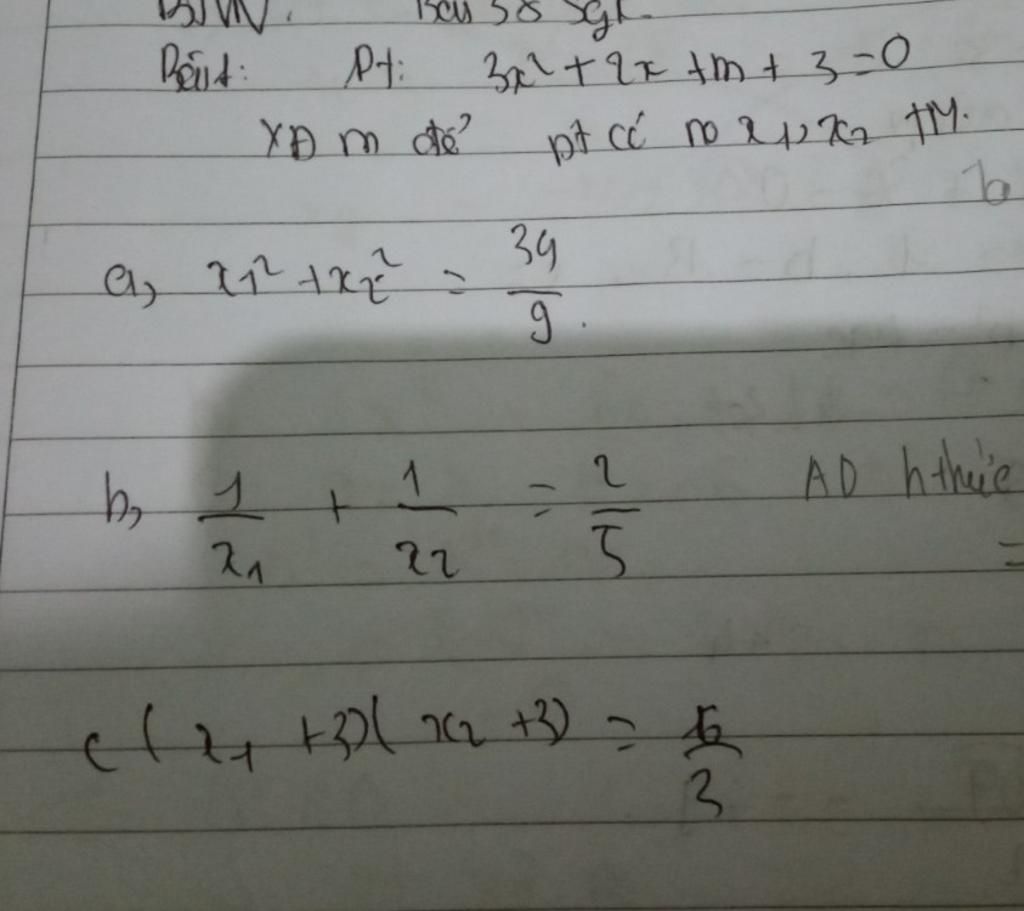 BTVN. Bài 38 sgk.
Bài 1: Pt: 3x² + 2x + m + 3 = 0
XĐ m để pt có no x1, x2 TM.
a, x1² + x2² = 34/9.
b, 1/x1 + 1/x2 = 2/5 AD hthức
=
c (x1 + 3)(x2 + 3) =